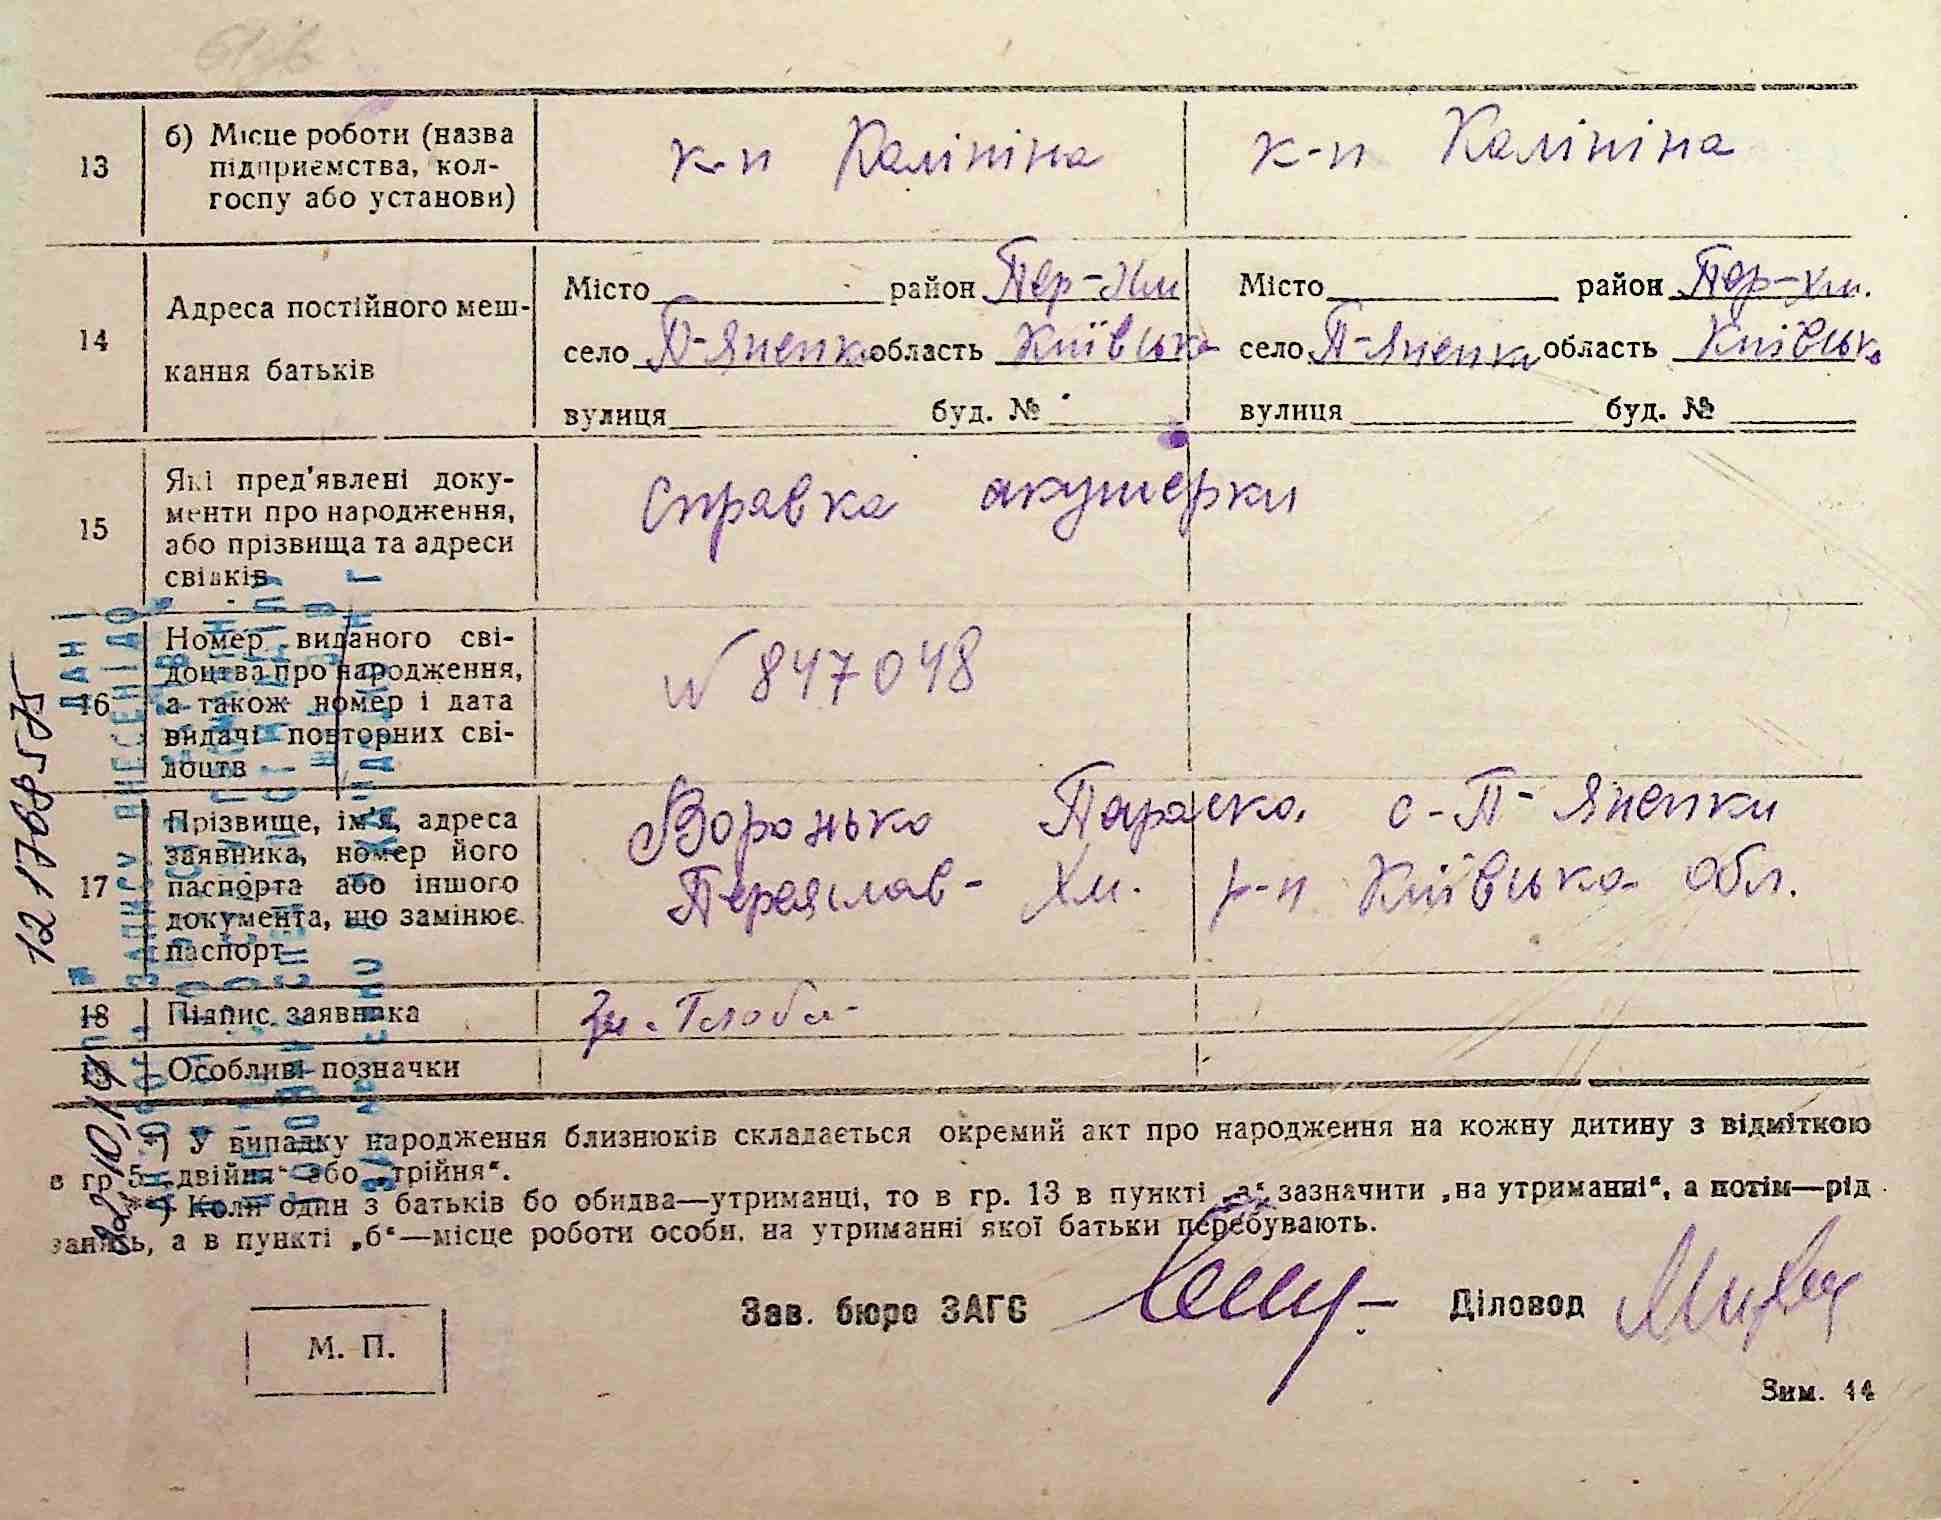 13
б) Місце роботи (назва
підприємства, кол-
госпу або установи)
к-п Калініна
к-п Калініна
14
Адреса постійного меш-
кання батьків
Місто район Пер-Хм
село П-Яненки область Київська
вулиця буд. №
Місто район Пер-Хм.
село П-Яненки область Київська
вулиця буд. №
15
Які пред'явлені доку-
менти про народження,
або прізвища та адреси
свідків
Справка акушерки
16
Номер виданого сві-
доцтва про народження,
а також номер і дата
видачі повторних сві-
доцтв
№ 847048
17
Прізвище, ім'я, адреса
заявника, номер його
паспорта або іншого
документа, що замінює
паспорт
Воронько Параска с-П-Яненки
Переяслав-Хм. р-н Київська обл.
18
Підпис заявника
19
Особливі позначки
*) У випадку народження близнюків складається окремий акт про народження на кожну дитину з відміткою
в гр 5 „двійня“ або „трійня“.
**) Коли один з батьків бо обидва—утриманці, то в гр. 13 в пункті „а“ зазначити „на утриманні“, а потім—рід
занять, а в пункті „б“—місце роботи особи, на утриманні якої батьки перебувають.
Зав. бюро ЗАГС
Діловод
М. П.
Зим. 44
ДАНІ